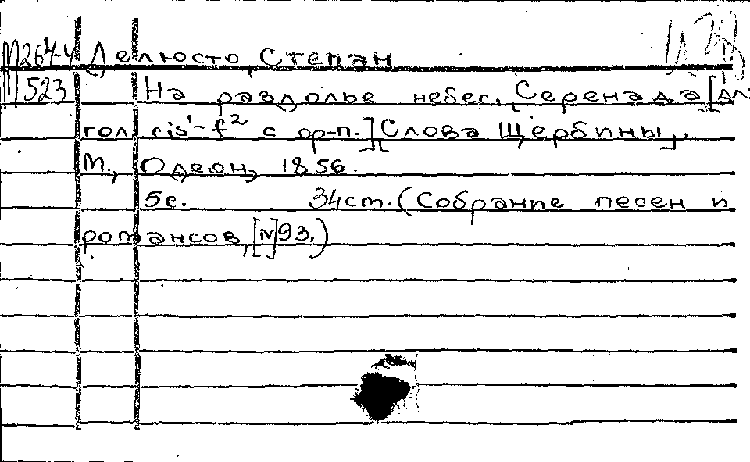 М264-4 Делюсто, Степан
523 На раздолье небес, Серенада [дл
гол. cis¹-f² с ор-п.] [Слова Щербины],
М., Одеон, 1856.
5с. 34ст. (Собрание песен и
романсов, [№]93.)